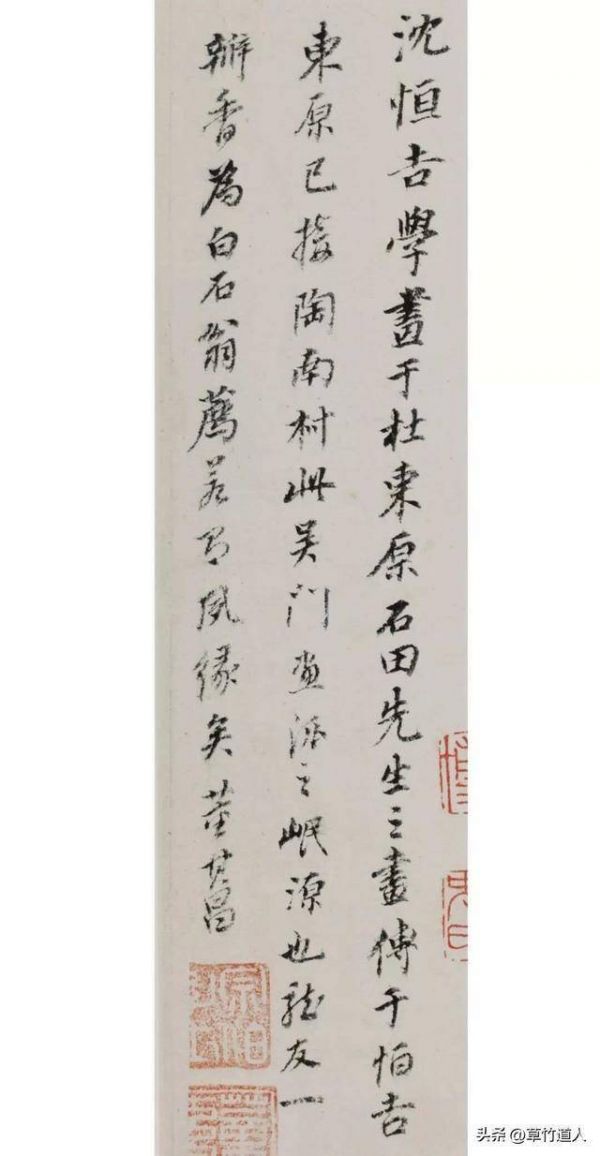 沈恒吉學畫于杜東原石田先生之畫傳于恒吉
東原已接陶南村此吳門畫派之岷源也龍友一
瓣香為白石翁薦若有夙緣矣董其昌
头条 @草竹道人